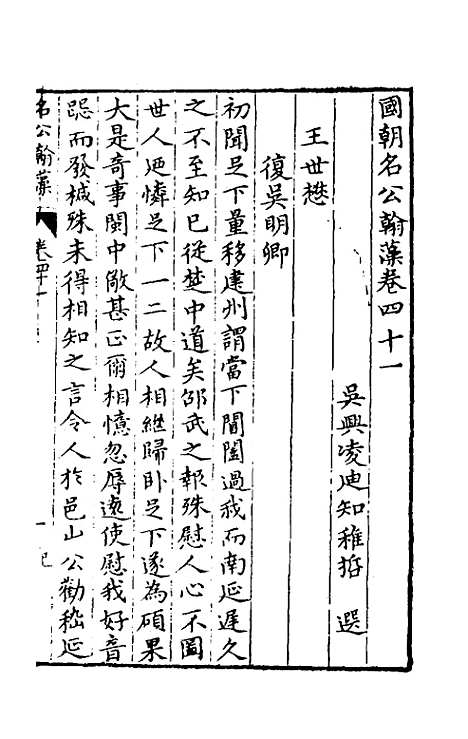 國朝名公翰藻卷四十一
吳興凌迪知稚哲 選
王世懋
復吳明卿
初聞足下量移建州謂當下閶闔過我而南延遲久
之不至知已從楚中道矣邵武之報殊慰人心不圖
世人迺憐足下一二故人相繼歸卧足下遂為碩果
大是奇事閩中敝甚正爾相憶忽辱遠使慰我好音
跽而發椷殊未得相知之言令人於邑山公勸嵇延
名公翰藻
卷四十一
一